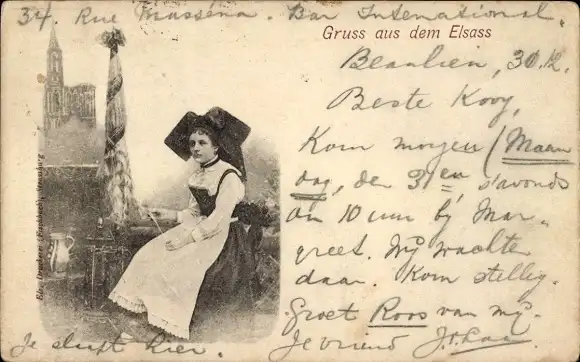 34 Rue Masséna. Bar International.
Gruss aus dem Elsass
Beaulieu, 30.12.
Beste Kooy,
Kom morgen (Maan
dag, den 31en s'avonds
om 10 uur bij Mar-
greet. Wij wachten
daar. Kom stellig.
Groet Roos van mij.
Je vriend
Je slaapt hier.